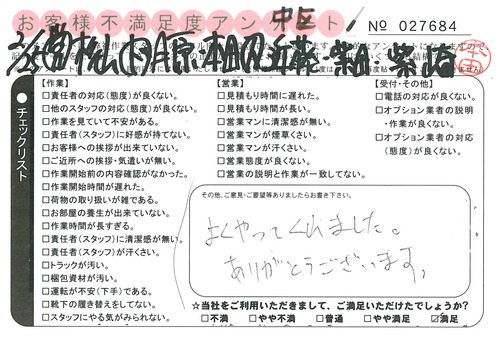 お客様不満足度アンケート
中区
No 027684
チェックリスト
【作業】
□責任者の対応(態度)が良くない。
□他のスタッフの対応(態度)が良くない。
□作業を見ていて不安がある。
□責任者(スタッフ)に好感が持てない。
□お客様への挨拶が出来ていない。
□ご近所への挨拶・気遣いが無い。
□作業開始前の内容確認がなかった。
□作業開始時間が遅れた。
□荷物の取り扱いが雑である。
□お部屋の養生が出来ていない。
□作業時間が長すぎる。
□責任者(スタッフ)に清潔感が無い。
□責任者(スタッフ)が汗くさい。
□トラックが汚い。
□梱包資材が汚い。
□運転が不安(下手)である。
□靴下の履き替えをしてない。
□スタッフにやる気がみられない。
【営業】
□見積もり時間に遅れた。
□見積もり時間が長い。
□営業マンに清潔感が無い。
□営業マンが煙草くさい。
□営業マンが汗くさい。
□営業態度が良くない。
□営業の説明と作業が一致してない。
【受付・その他】
□電話の対応が良くない。
□オプション業者の説明
・作業が良くない。
□オプション業者の対応
(態度)が良くない。
その他、ご意見・ご要望等ありましたらお書き下さい。
よくやってくれました。
ありがとうございます。
☆当社をご利用いただきまして、ご満足いただけたでしょうか?
□不満 □やや不満 □普通 □やや満足 ☑満足